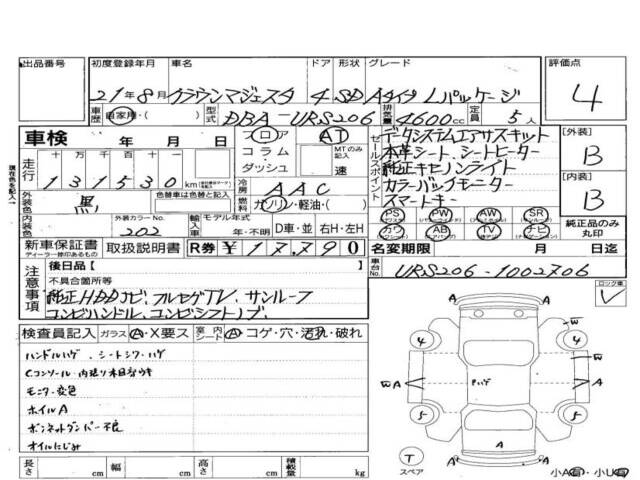 出品番号 初度登録年月 車名 ドア 形状 グレード 評価点
21年8月 クラウンマジェスタ 4 SD Aタイプ Lパッケージ 4
車歴 自家用・( ) 型式 DBA-URS206 排気量 4600cc 定員 5人
車検 年 月 日 フロア AT セールスポイント データシステムエアサスキット [外装]
走行 十万 万 千 百 十 一 コラム MTのみ記入 本革シート、シートヒーター B
131530km ダッシュ 速 純正キセノンライト
外装色 黒 色替車は色替前色 冷房 AAC カラーバックモニター [内装]
内装色 燃料 ガソリン・軽油・( ) スマートキー B
外装カラーNo. 202 輸入車 モデル年式 年・不明 D車・並 右H・左H PS PW AW SR 純正品のみ丸印
カワ AB TV ナビ
現在色を記入
新車保証書 取扱説明書 R券 ¥17,790 名変期限 月 日迄
ディーラー捺印あるもの
注意事項 後日品【 】 車台No. URS206-1002706
不具合箇所等 ロック車
純正HDDナビ、フルセグTV、サンルーフ レ
コンビハンドル、コンビシフトノブ、
検査員記入 ガラス A・X要ス 室内シート A・コゲ・穴・汚れ・破れ
ハンドルハゲ、シートシワ・ハゲ
Cコンソール・内張り木目浮キ
モニター変色
ホイルA
ボンネットダンパー不良
オイルにじみ
A A
4 4
W
WA A
5 5
A
T スペア A A
小A有・小U有
長さ cm 幅 cm 高さ cm 積載量 kg